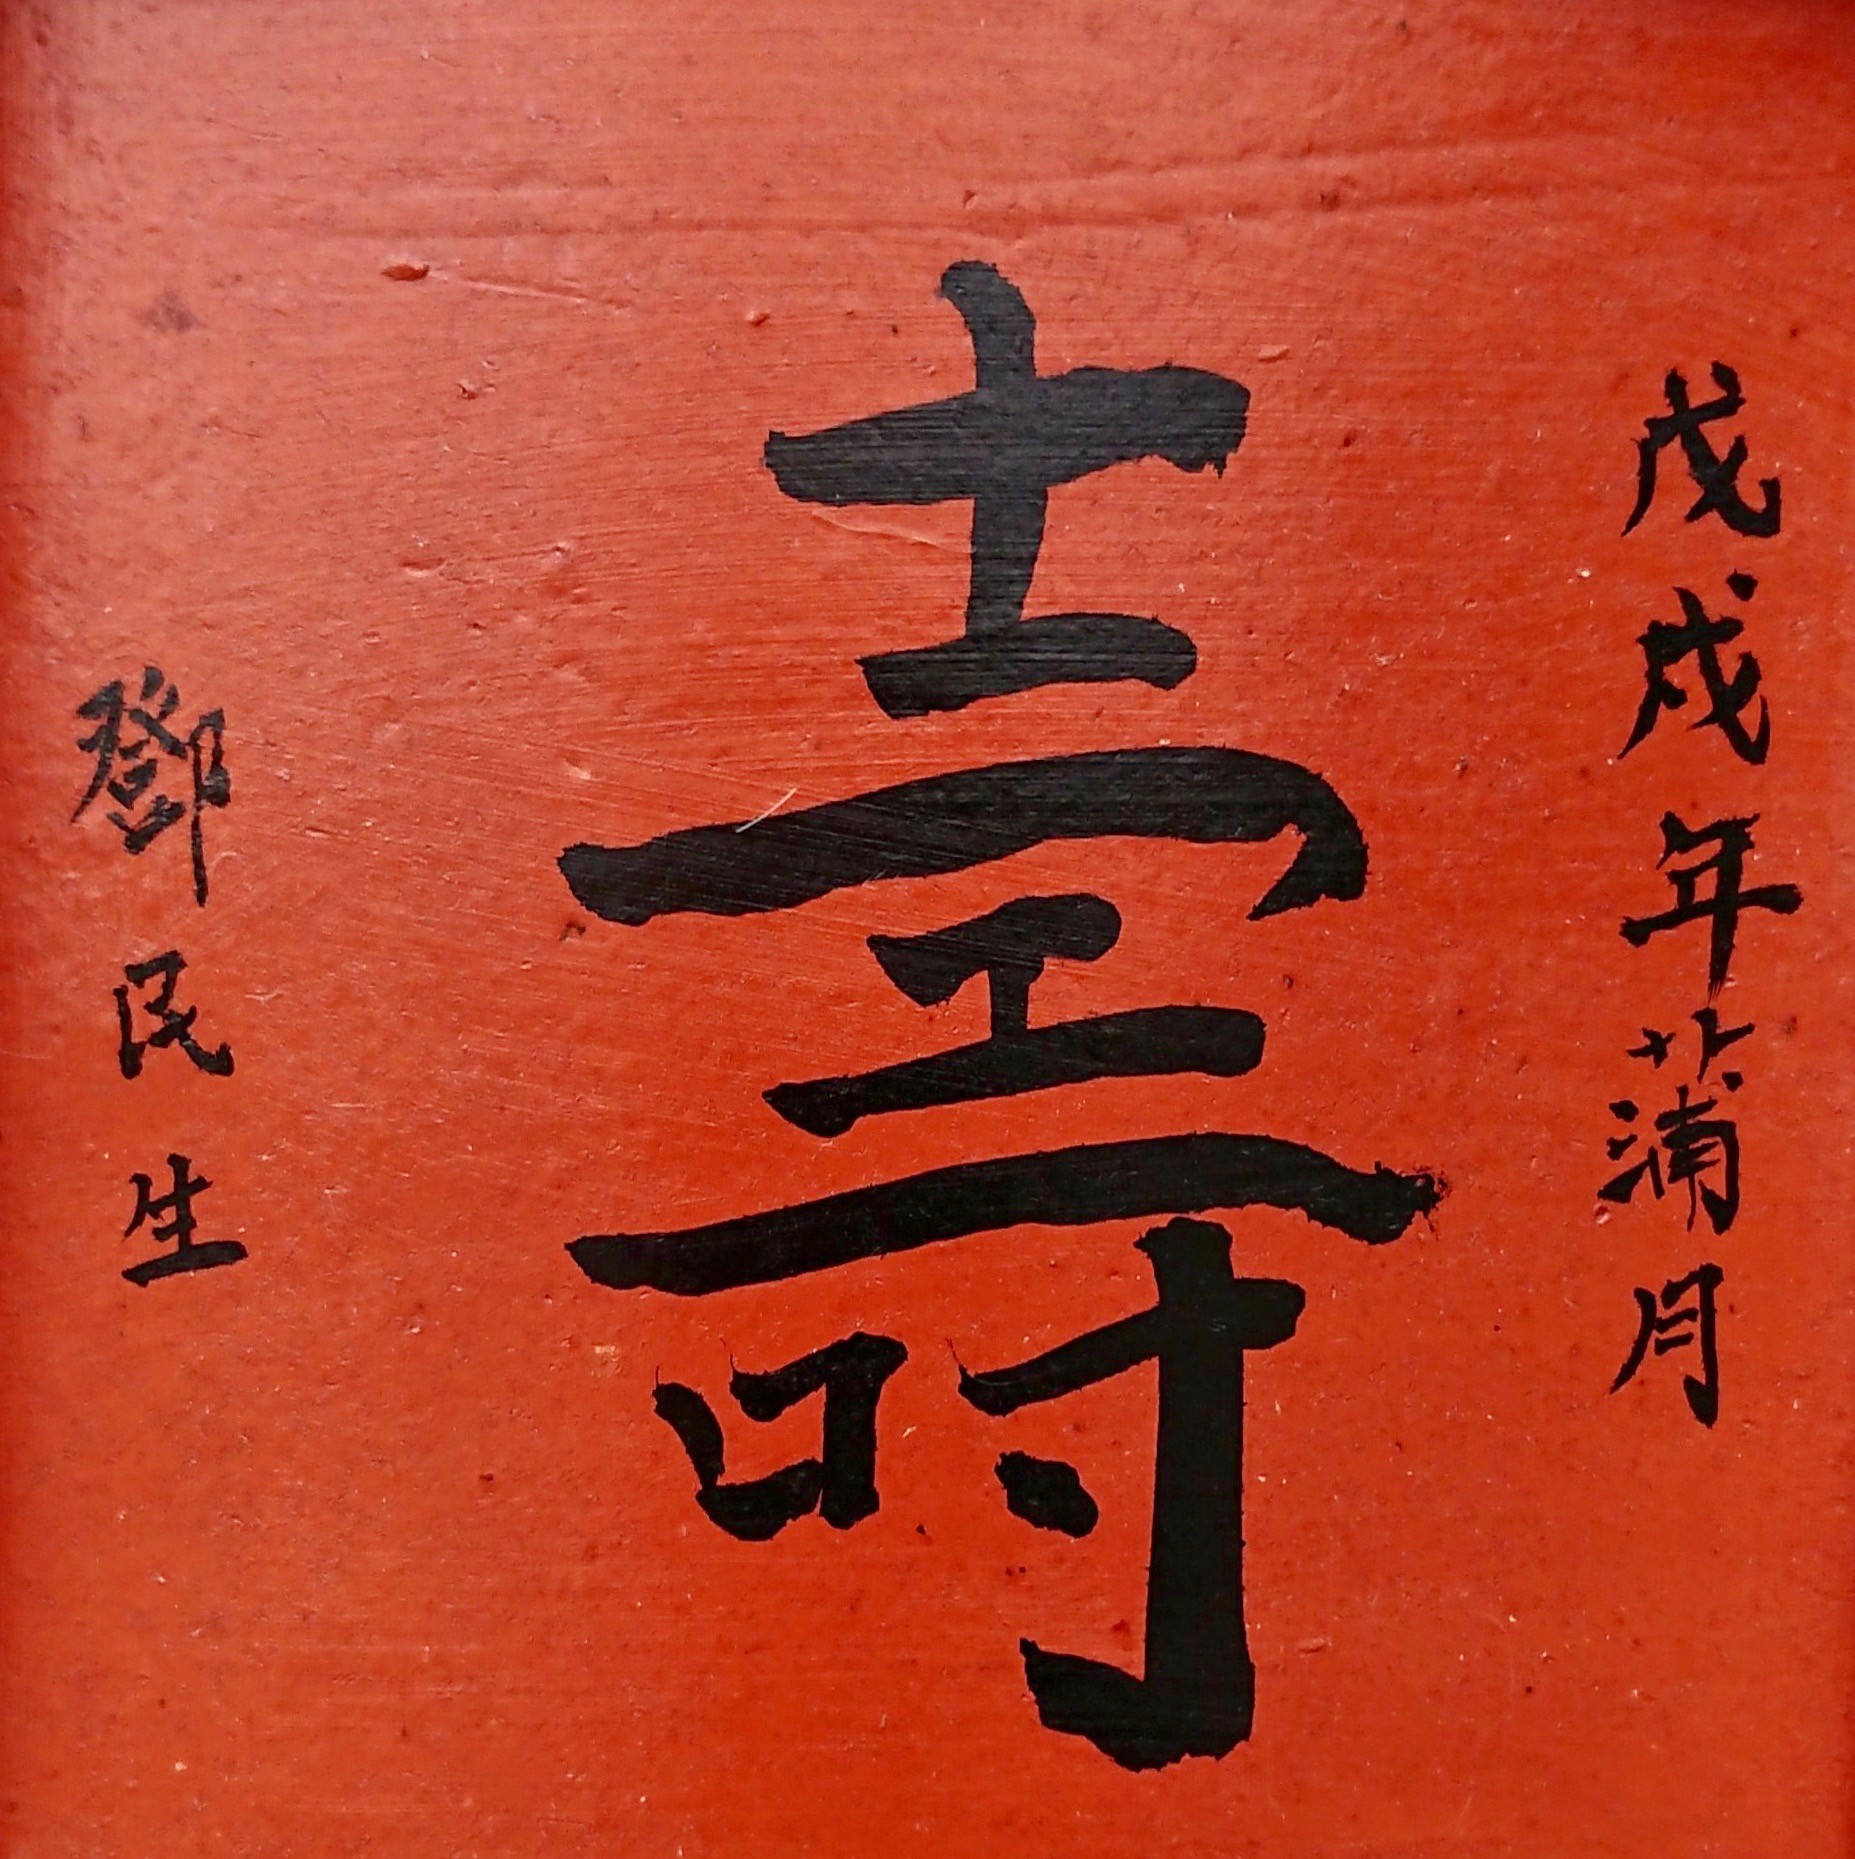 戊戌年蒲月
壽
鄧民生